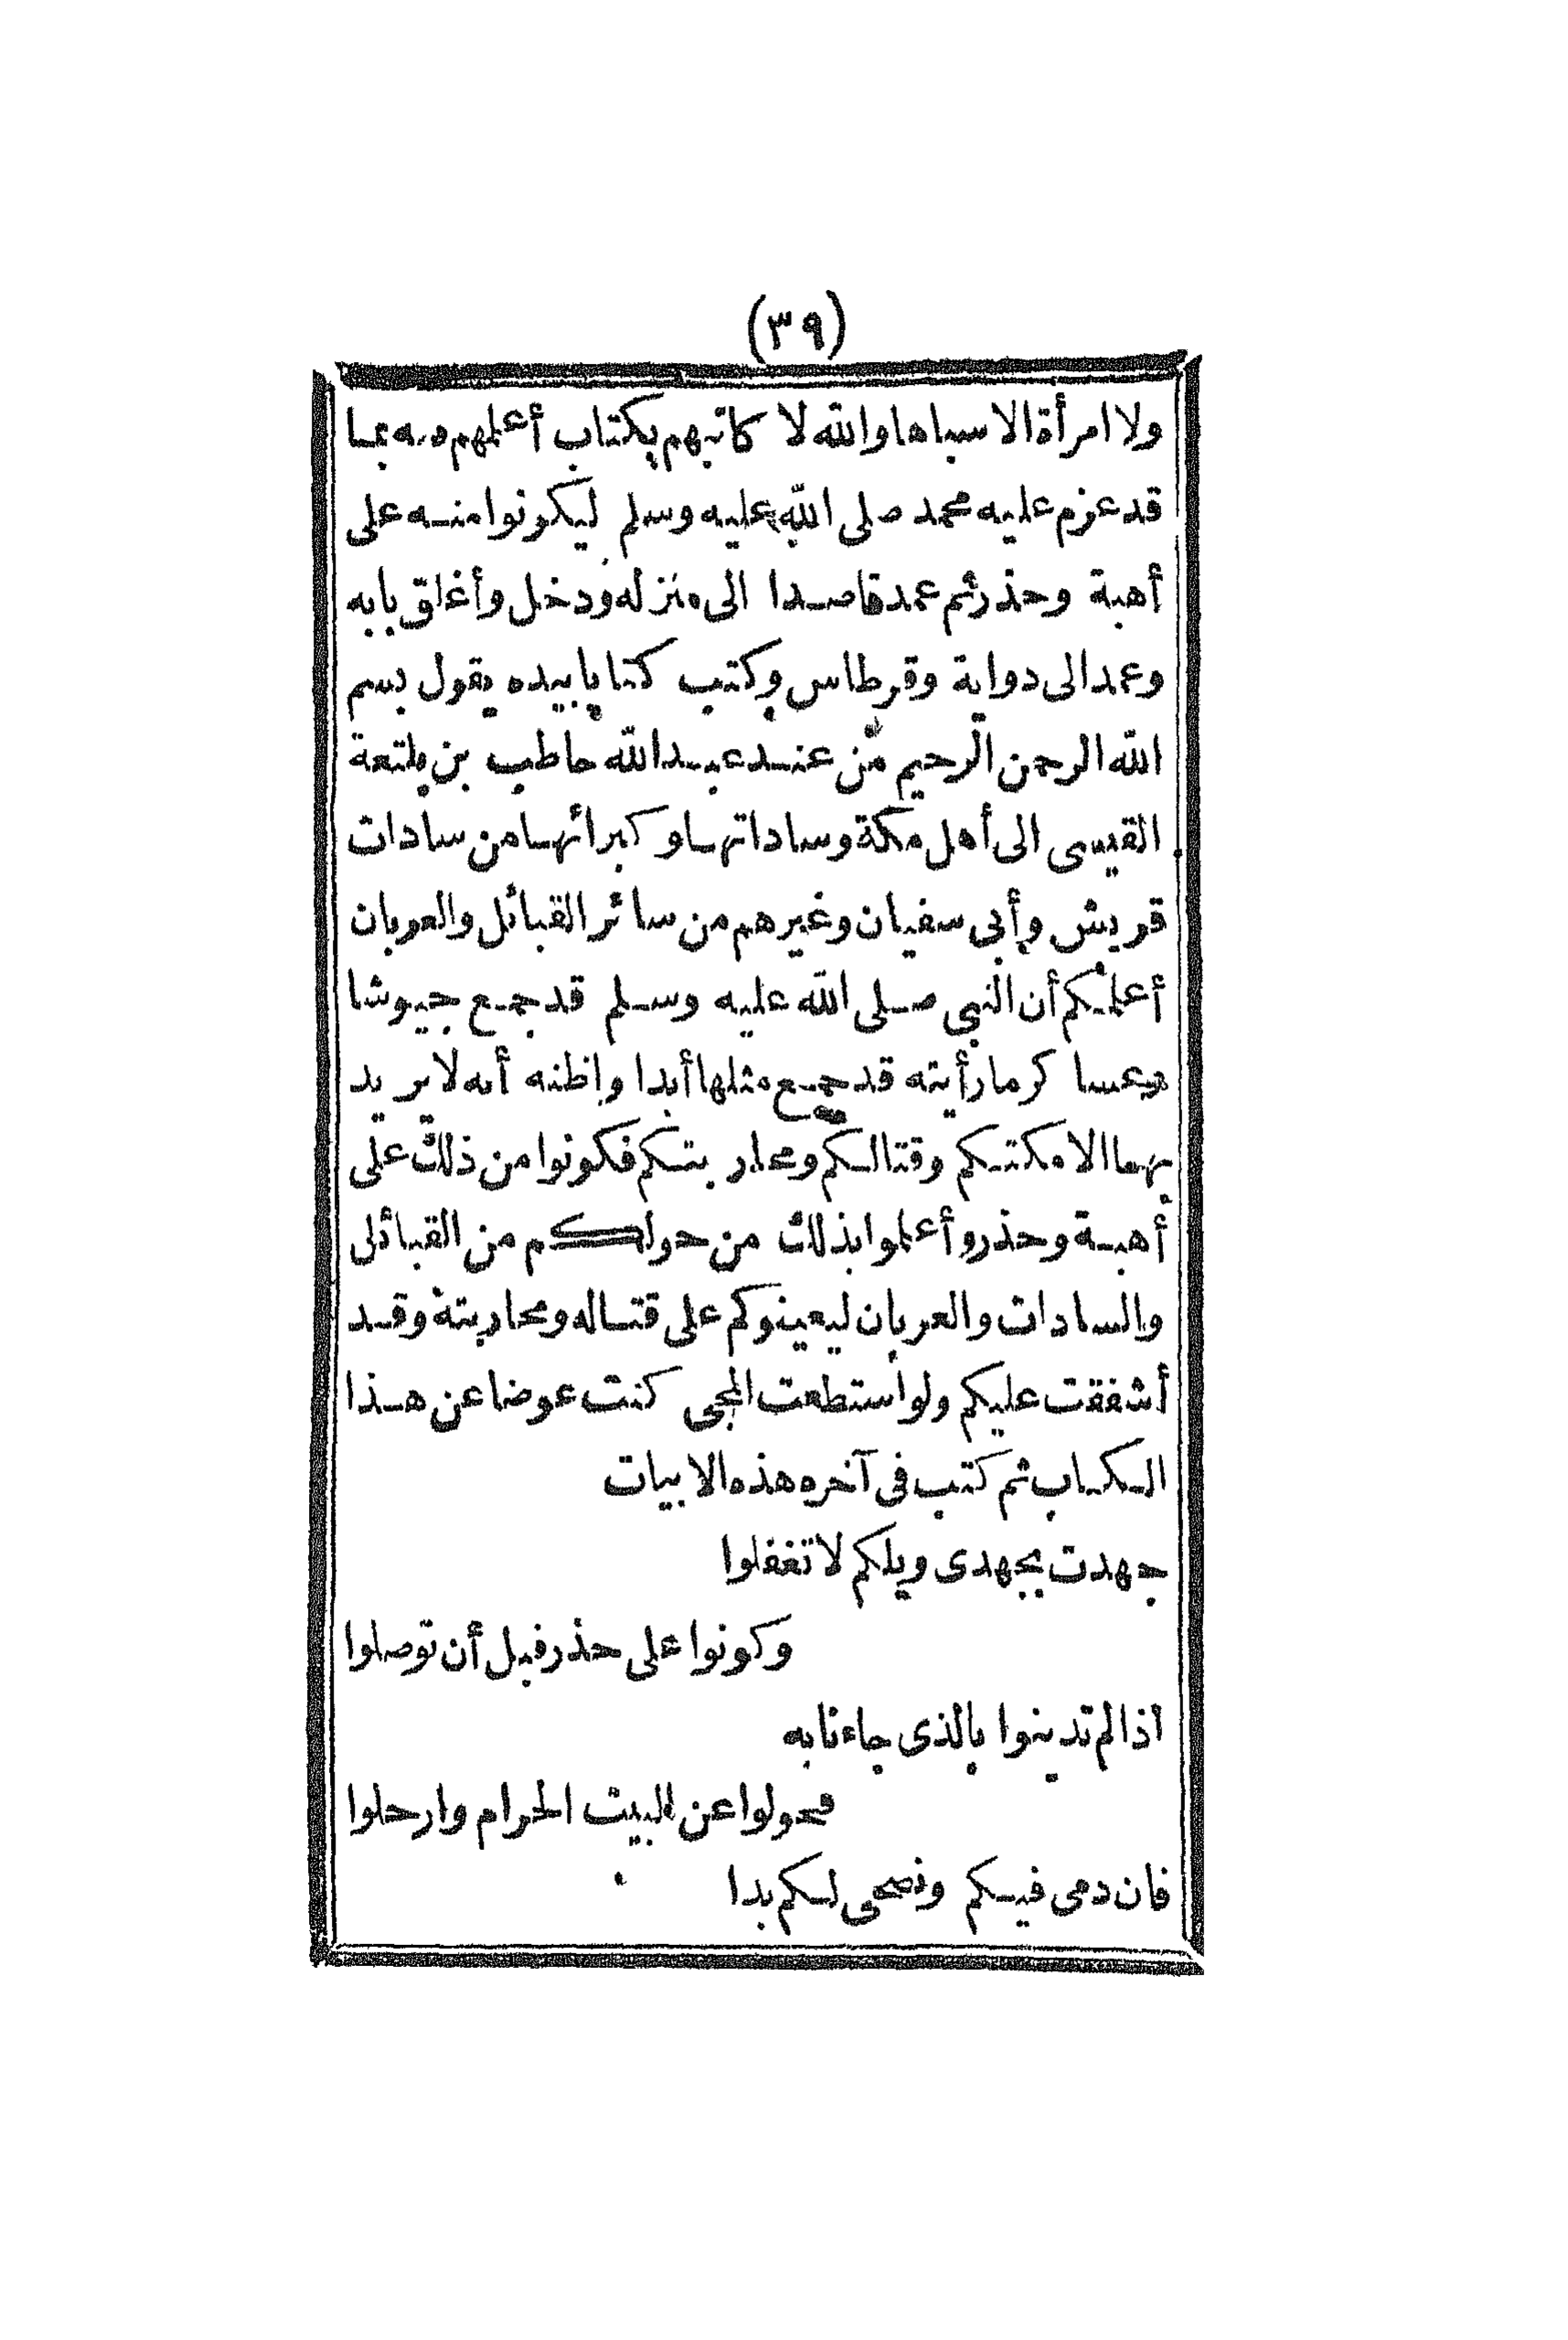 (٣٩)
ولا امرأة الا سباها والله لا كاتبهم بكتاب أعلمهم فيه بما
قد عزم عليه محمد صلى الله عليه وسلم ليكونوا منه على
أهبة وحذر ثم عمد قاصدا الى منزله ودخل وأغلق بابه
وعمد الى دواية وقرطاس وكتب كتابا بيده يقول بسم
الله الرحمن الرحيم من عند عبد الله حاطب بن بلتعة
القيسى الى أهل مكة وساداتها وكبرائها من سادات
قريش وأبى سفيان وغيرهم من سائر القبائل والعربان
أعلمكم أن النبى صلى الله عليه وسلم قد جمع جيوشا
كر ما رأيته قد جمع مثلها أبدا واظنه أنه لا يريد
بها الا مكتكم وقتالكم ومحاربتكم فكونوا من ذلك على
أهبة وحذر وأعلموا بذلك من حولكم من القبائل
والسادات والعربان ليعينوكم على قتاله ومحاربته وقد
أشفقت عليكم ولو استطعت المجى كنت عوضا عن هذا
الكتاب ثم كتب فى آخره هذه الابيات
جهدت بجهدى ويلكم لا تغفلوا
وكونوا على حذر قبل أن توصلوا
اذا لم تدينوا بالذى جاءنا به
فحولوا عن البيت الحرام وارحلوا
فان دمى فيكم ونصحى لكم بدا